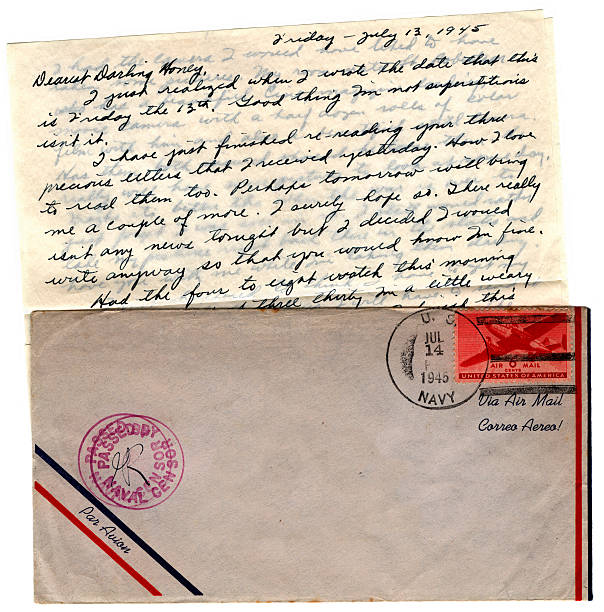 Friday - July 13, 1945
Dearest Darling Honey,
I just realized when I wrote the date that this
is Friday the 13th. Good thing I'm not superstitious
isn't it.
I have just finished re-reading your three
precious letters that I received yesterday. How I love
to read them too. Perhaps tomorrow will bring
me a couple of more. I surely hope so. There really
isn't any news tonight but I decided I would
write anyway so that you would know I'm fine.
Had the four to eight watch this morning
three thirty I'm a little weary
this
U. S.
JUL
14
1945
NAVY
AIR 6 MAIL
CENTS
UNITED STATES OF AMERICA
Via Air Mail
Correo Aereo!
PASSED BY
NAVAL CENSOR
Par Avion